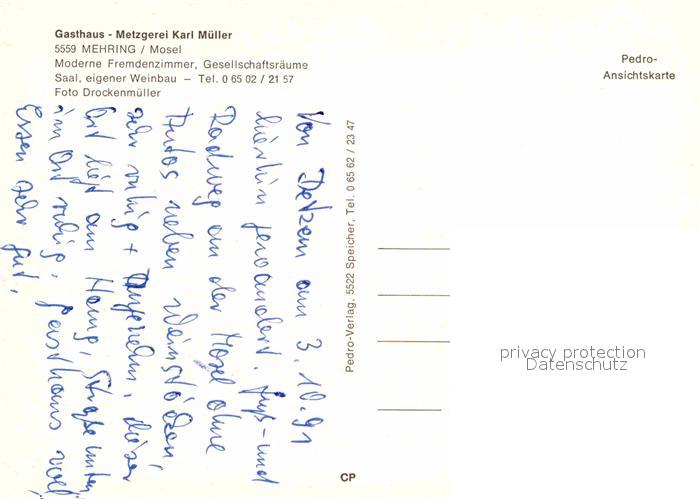 Gasthaus - Metzgerei Karl Müller
5559 MEHRING / Mosel
Moderne Fremdenzimmer, Gesellschaftsräume
Saal, eigener Weinbau – Tel. 0 65 02 / 21 57
Foto Drockenmüller
Pedro-
Ansichtskarte
Von Detzem am 3.10.91
hierhin gewandert. Fuß- und
Radweg an der Mosel ohne
Autos neben Weinstöcken,
sehr ruhig + angenehm, dieser
Ort liegt am Hang, Straße unten
im Ort ruhig, Gasthaus voll
Essen sehr gut.
Pedro-Verlag, 5522 Speicher, Tel. 0 65 62 / 23 47
CP
privacy protection
Datenschutz